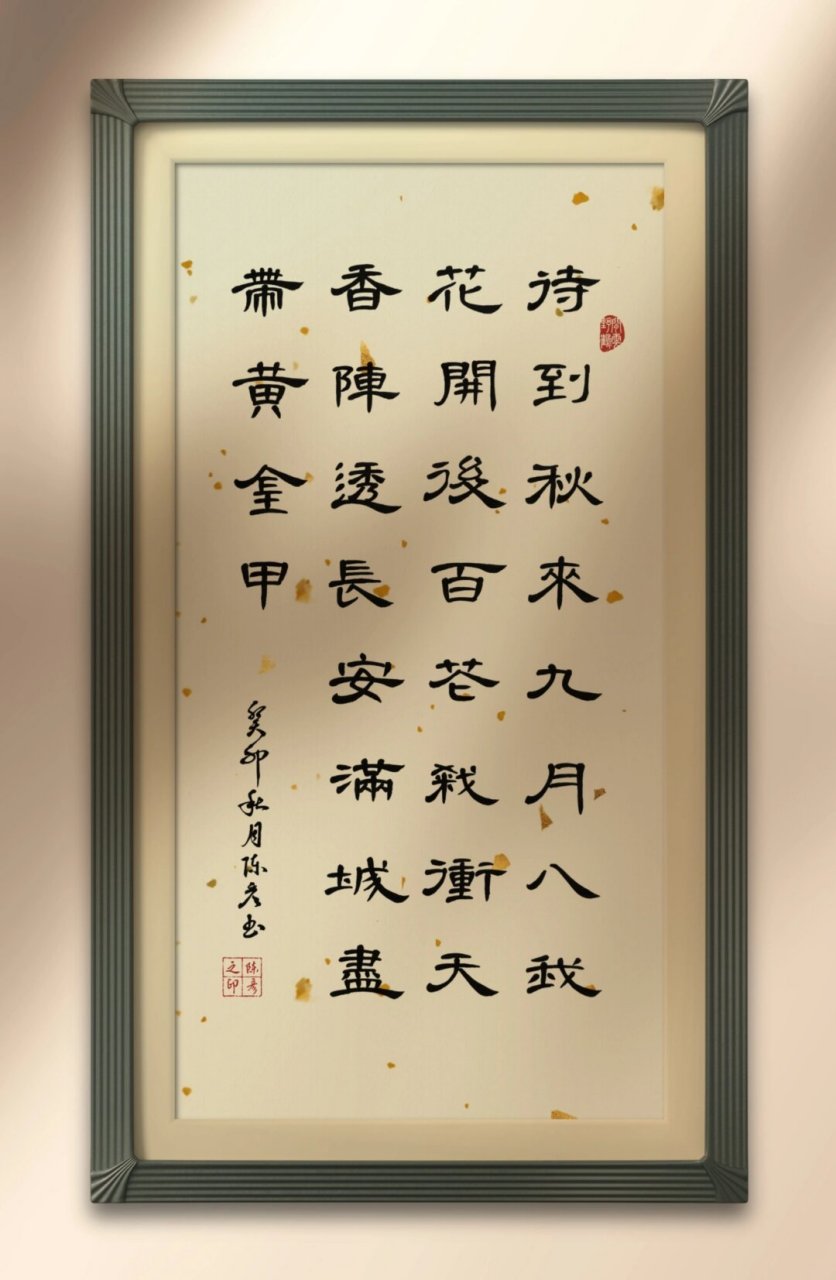 待到秋來九月八我
花開後百花殺衝天
香陣透長安滿城盡
帶黃金甲
癸卯秋月陈彦书
陈彦之印